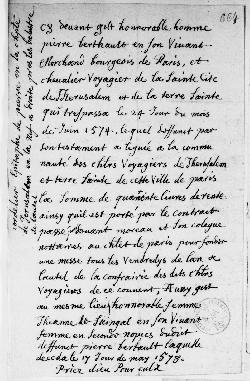 664
Cy devant gist honnorable homme
pierre berthault en son vivant
Marchand bourgeois de Paris, et
chevalier voyagier de la Sainte Cité
de Jherusalem et de la terre Sainte
qui trespassa le 24 Jour du mois
de Juin 1574. lequel deffunt par
son testament a legué a la commu
nauté des chlrs Voyagiers de Jherusalem
et terre Sainte de cette Ville de paris
la Somme de quarente livres de rente
ainsy quil est porté par le contract
passé devant moreau et son colegue
nottaires au chlet de paris pour fonder
une messe tous les Vendredys de lan a
lautel de la confrairie des dits chlrs
Voyagieres de ce couvent, Aussy gist
au mesme lieu honnorable femme
Jheanne de en son Vivant
femme en Secondes nopces dudict
diffunct pierre bertault laquelle
deceda le 17 Jour de may 1578.
Priez dieu Pour eulx